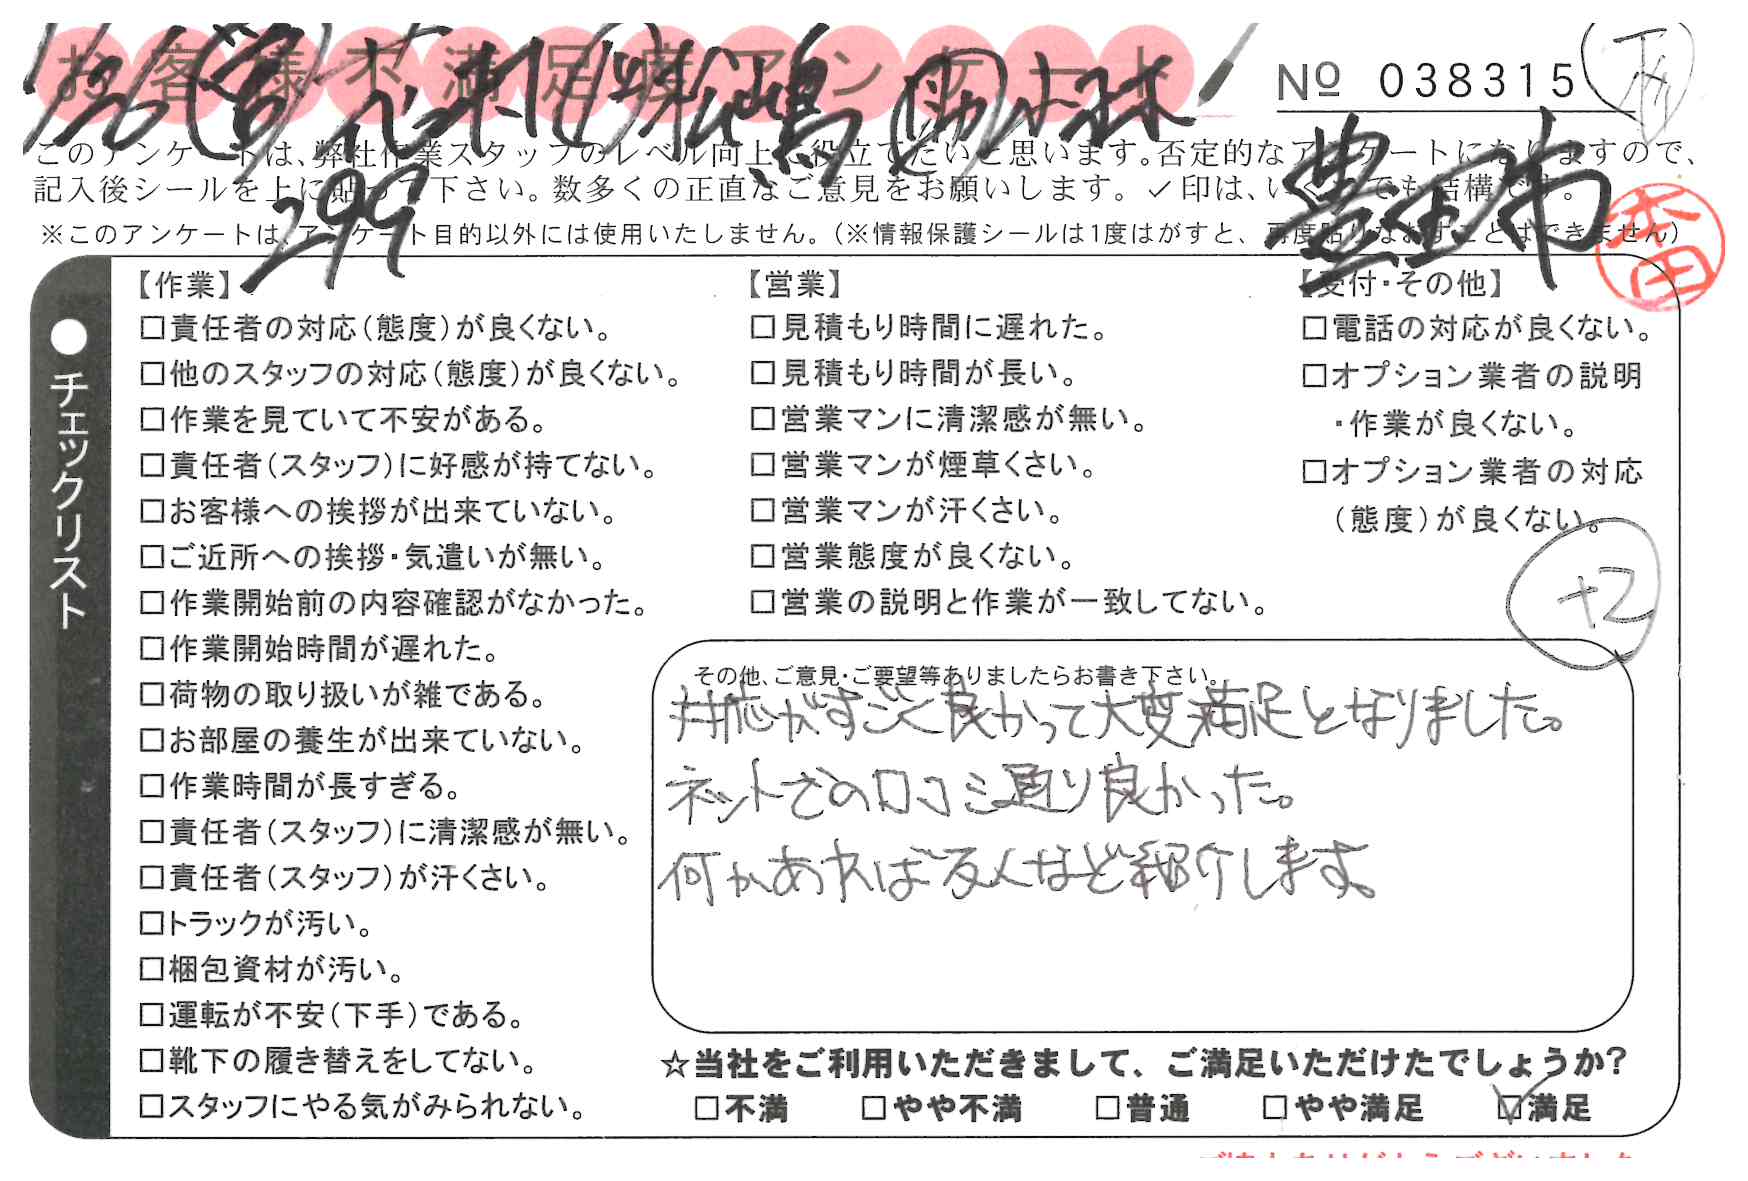 お客様不満足度アンケート
№ 038315
このアンケートは、弊社作業スタッフのレベル向上に役立てたいと思います。否定的なアンケートになりますので、
記入後シールを上に貼って下さい。数多くの正直なご意見をお願いします。✓印は、いくつでも結構です。
※このアンケートは、アンケート目的以外には使用いたしません。(※情報保護シールは1度はがすと、再度貼りなおすことはできません)
299
豊田市
●チェックリスト
【作業】
□責任者の対応(態度)が良くない。
□他のスタッフの対応(態度)が良くない。
□作業を見ていて不安がある。
□責任者(スタッフ)に好感が持てない。
□お客様への挨拶が出来ていない。
□ご近所への挨拶・気遣いが無い。
□作業開始前の内容確認がなかった。
□作業開始時間が遅れた。
□荷物の取り扱いが雑である。
□お部屋の養生が出来ていない。
□作業時間が長すぎる。
□責任者(スタッフ)に清潔感が無い。
□責任者(スタッフ)が汗くさい。
□トラックが汚い。
□梱包資材が汚い。
□運転が不安(下手)である。
□靴下の履き替えをしてない。
□スタッフにやる気がみられない。
【営業】
□見積もり時間に遅れた。
□見積もり時間が長い。
□営業マンに清潔感が無い。
□営業マンが煙草くさい。
□営業マンが汗くさい。
□営業態度が良くない。
□営業の説明と作業が一致してない。
【受付・その他】
□電話の対応が良くない。
□オプション業者の説明
・作業が良くない。
□オプション業者の対応
(態度)が良くない。
+2
その他、ご意見・ご要望等ありましたらお書き下さい。
対応がすごく良かって大変満足となりました。
ネットでの口コミ通り良かった。
何かあれば友人など紹介します。
☆当社をご利用いただきまして、ご満足いただけたでしょうか?
□不満 □やや不満 □普通 □やや満足 ☑満足